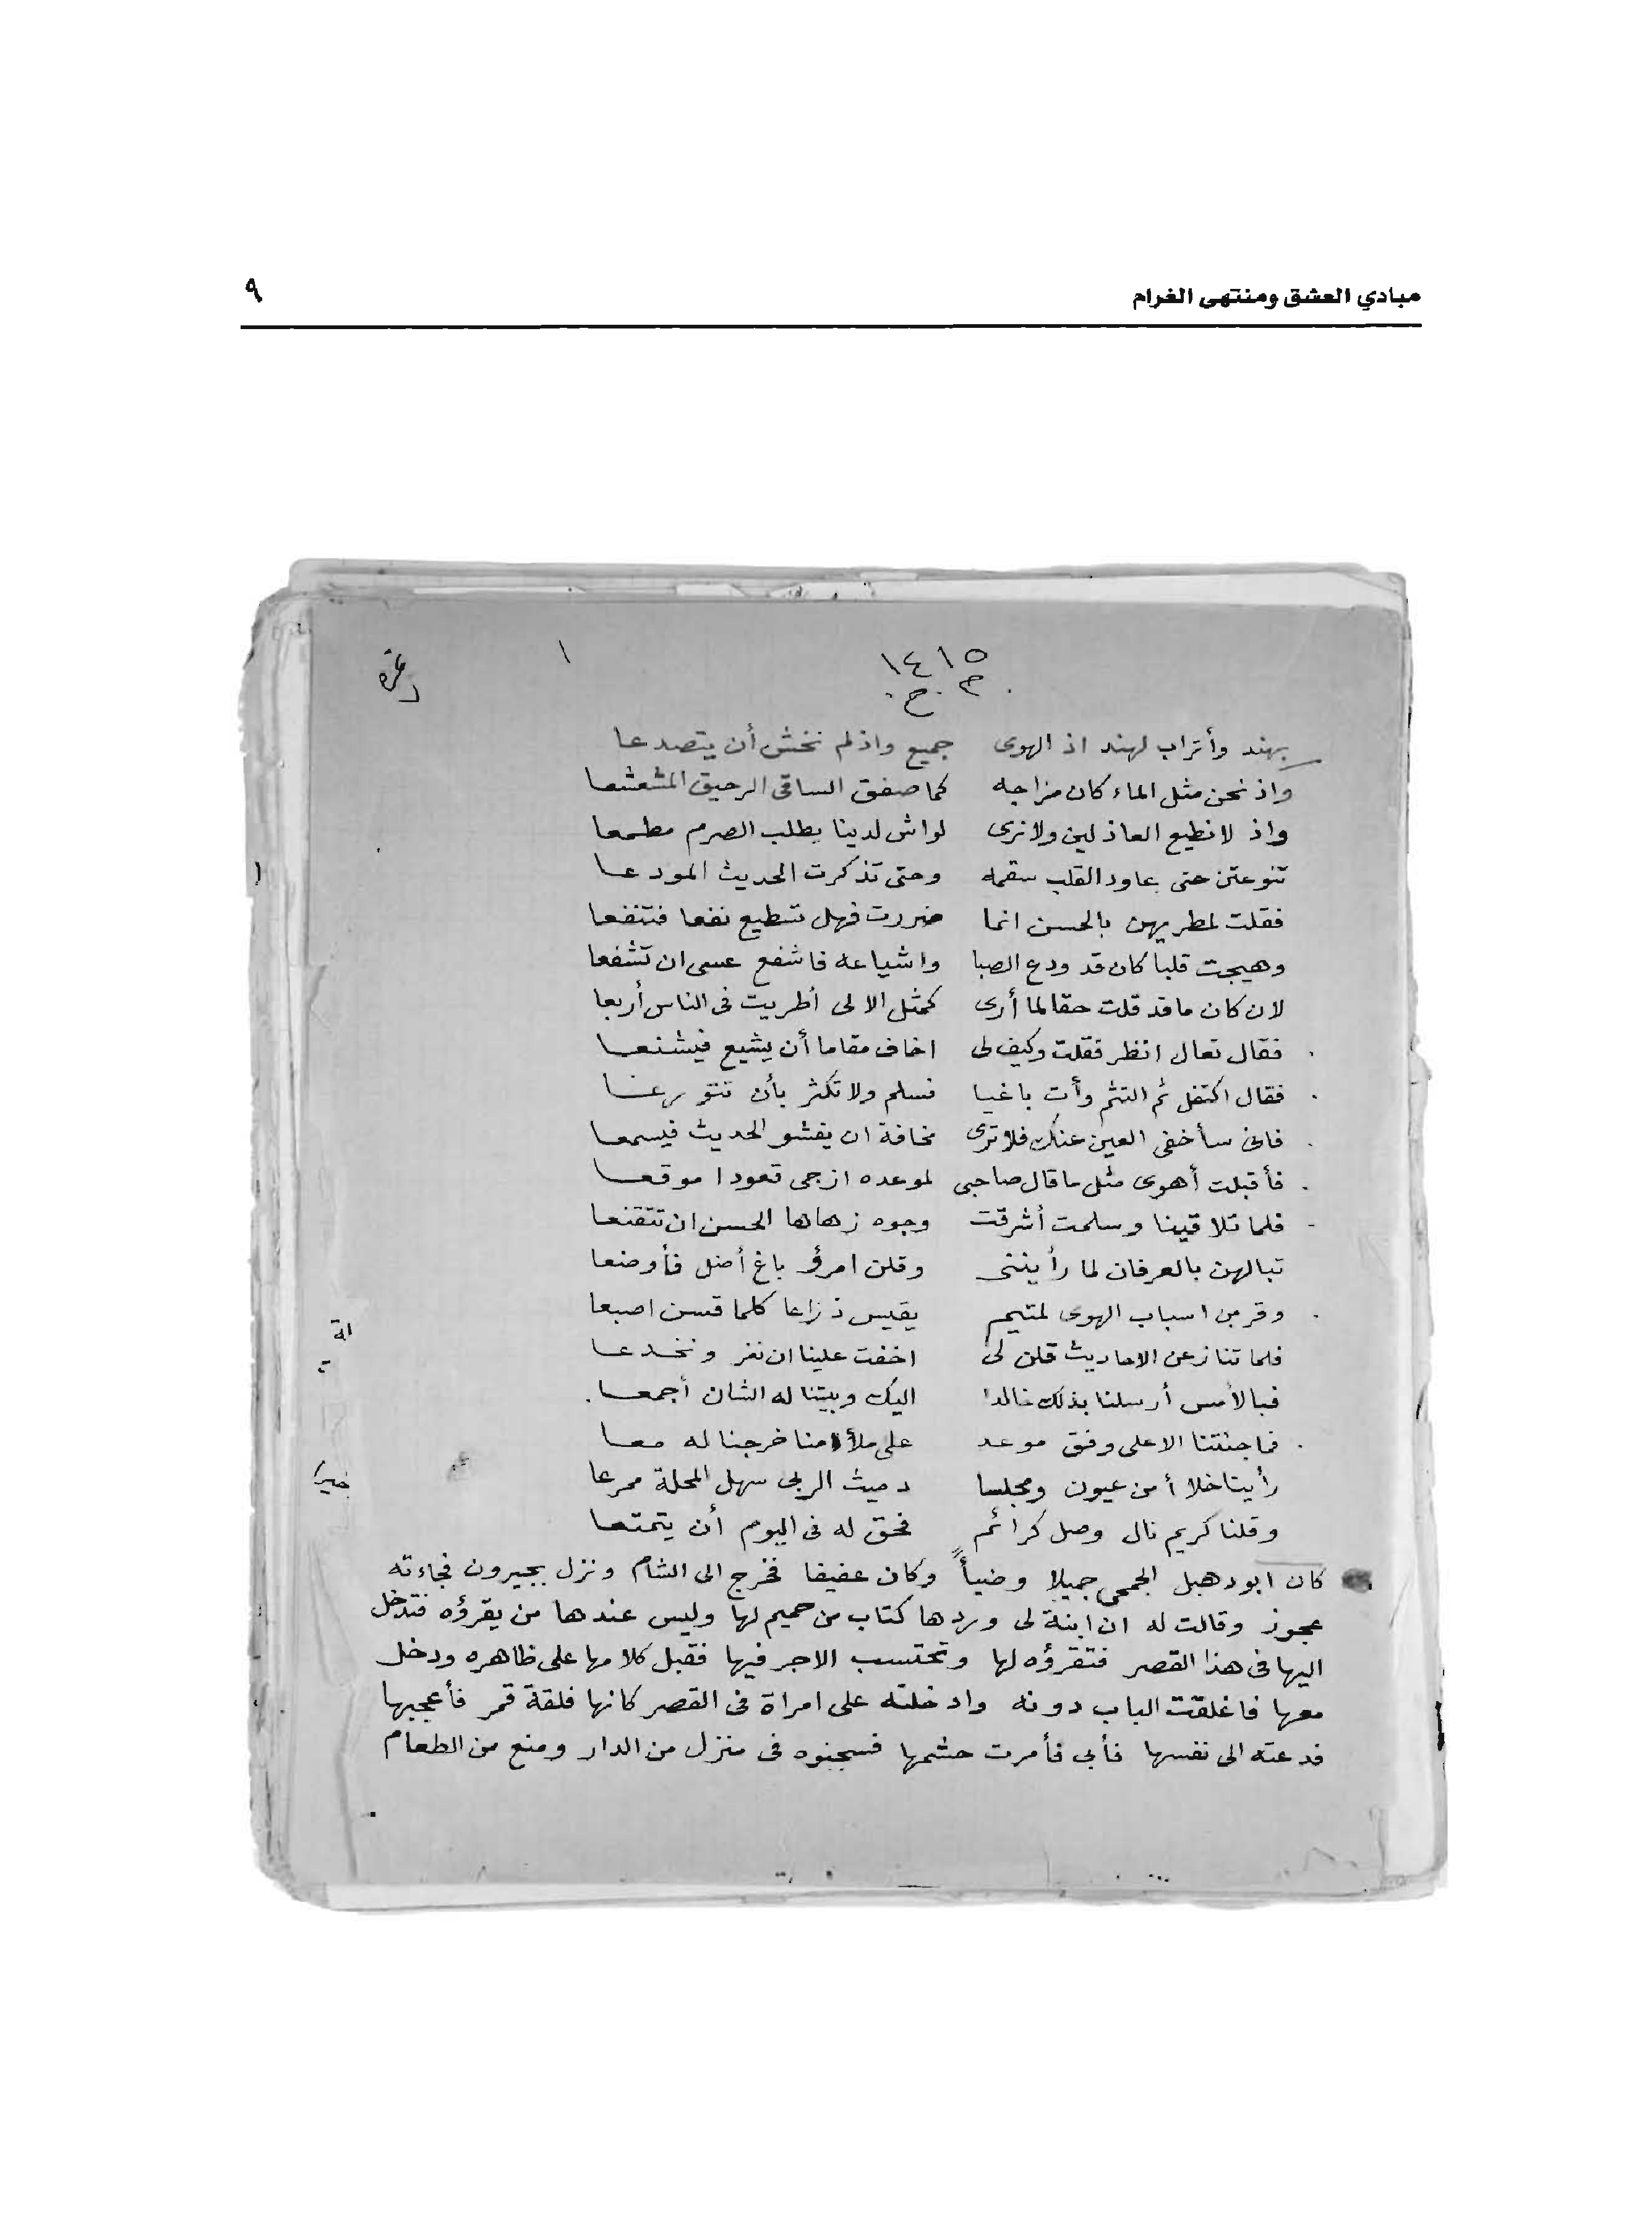 مبادي العشق ومنتهى الغرام ٩
١٤١٥ ١
م . ح .
بهند وأتراب لهند اذ الهوى جميع واذ لم نخش أن يتصدعا
واذ نحن مثل الماء كان مزاجه كما صفق الساقى الرحيق المشعشعا
واذ لا نطيع العاذلين ولا نرى لواش لدينا يطلب الصرم مطمعا
تنوعتن حتى عاود القلب سقمه وحتى تذكرت الحديث المودعا
فقلت لمطريهن بالحسن انما ضررت فهل تسطيع نفعا فتنفعا
وهيجت قلبا كان قد ودع الصبا واشياعه فاشفع عسى ان تشفعا
لان كان ما قد قلت حقا لما أرى كمثل الالى أطريت فى الناس أربعا
فقال تعال انظر فقلت وكيف لى اخاف مقاما أن يشيع فيشنعا
فقال اكتفل ثم التثم وأت باغيا فسلم ولا تكثر بأن تتورعا
فانى سأخفى العين عنك فلا ترى مخافة ان يفشو الحديث فيسمعا
فأقبلت أهوى مثل ما قال صاحبى لموعده ازجى قعودا موقعا
فلما تلاقينا وسلمت أشرقت وجوه زهاها الحسن ان تتقنعا
تبالهن بالعرفان لما رأيننى وقلن امرؤ باغ أضل فأوضعا
وقربن اسباب الهوى لمتيم يقيس ذراعا كلما قسن اصبعا
فلما تنازعن الاحاديث قلن لى اخفت علينا ان نغر ونخدعا
فبالأمس أرسلنا بذلك خالدا اليك وبيتنا له الشان أجمعا
فما جئتنا الا على وفق موعد على ملأ منا خرجنا له معا
رأينا خلا أمن عيون ومجلسا دميث الربى سهل المحلة ممرعا
وقلنا كريم نال وصل كرائم فحق له فى اليوم أن يتمتعا
كان ابو دهبل الجمحى جميلا وضيأً وكان عفيفا فخرج الى الشام ونزل بجيرون فجاءته
عجوز وقالت له ان ابنة لى وردها كتاب من حميم لها وليس عندها من يقرؤه فتدخل
اليها فى هذا القصر فتقرؤه لها وتحتسب الاجر فيها فقبل كلامها على ظاهره ودخل
معها فاغلقت الباب دونه وادخلته على امراة فى القصر كانها فلقة قمر فأعجبها
فدعته الى نفسها فأبى فأمرت حشمها فسجنوه فى منزل من الدار ومنع من الطعام